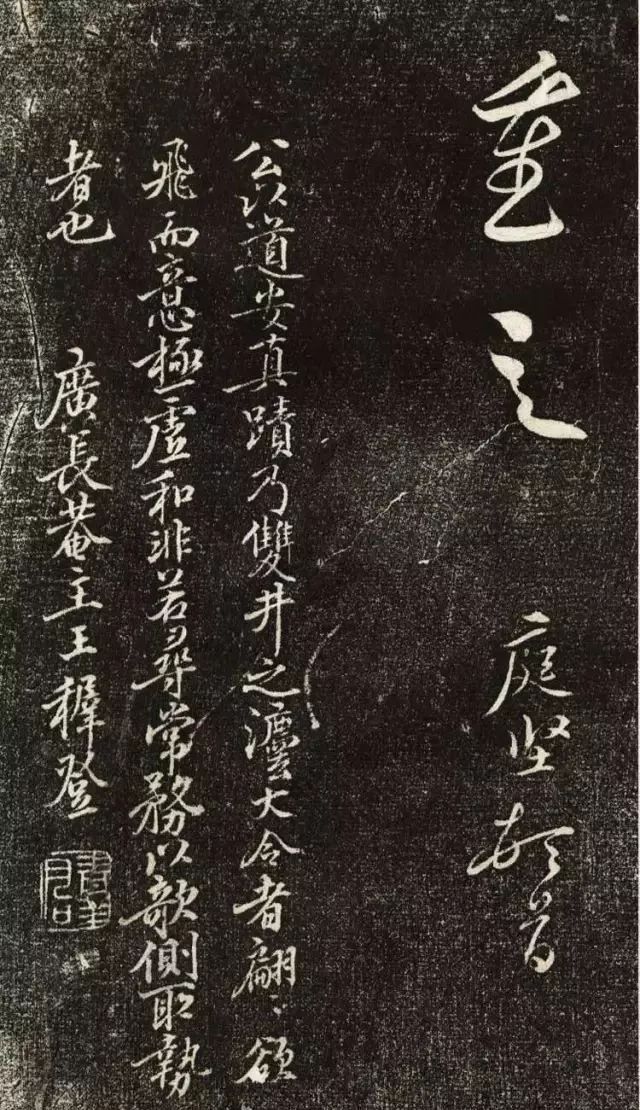 之 庭坚頓首
公以道安真蹟乃雙井之灋大令者翩〻欲
飛而意極虛和非若尋常務以欹側取勢
者也 廣長菴主王穉登